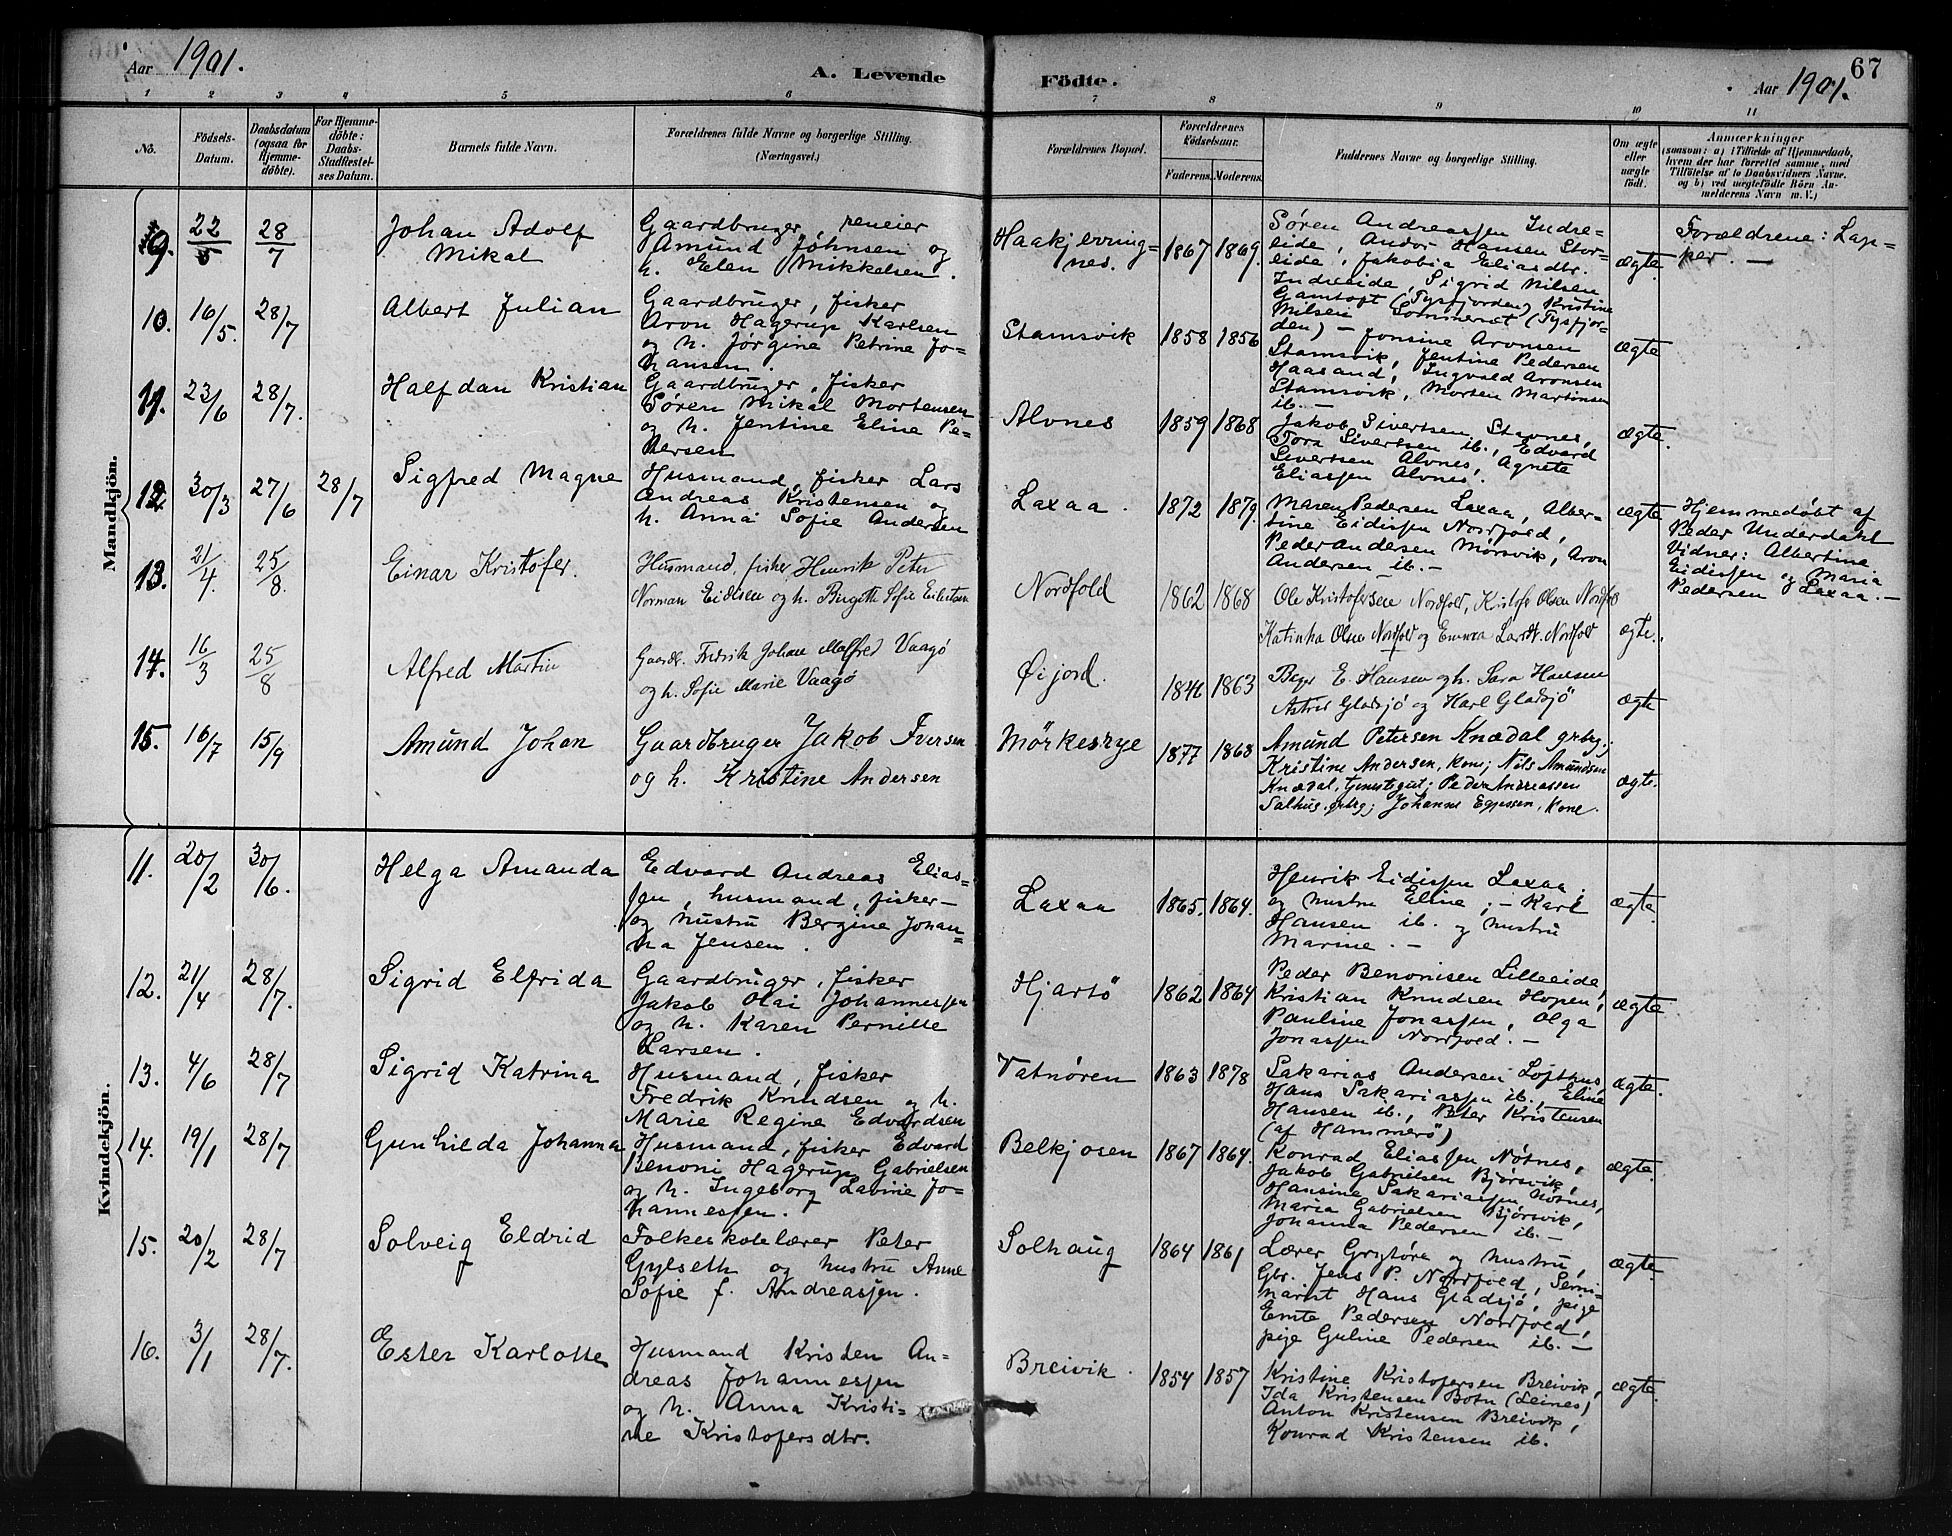 Aar 1901.
A. Levende
Födte.
Aar 1901.
67
1 2 3 4 5 6 7 8 9 10 11
No.
Födsels-
Datum.
Daabsdatum
(ogsaa for
Hjemme-
döbte).
For Hjemme-
döbte:
Daabs-
Stadfæstel-
ses Datum.
Barnets fulde Navn.
Forældrenes fulde Navne og borgerlige Stilling.
(Næringsvei.)
Forældrenes Bopæl.
Forældrenes
Födselsaar.
Faderens. Moderens.
Faddernes Navne og borgerlige Stilling.
Om ægte
eller
uægte
født.
Anmærkninger
(saasom: a) i Tilfælde af Hjemmedaab,
hvem der har forrettet samme, med
Tilföielse af to Daabsvidners Navne,
og b) ved uægtefödte Börn An-
melderens Navn m. V.)
Mandkjön.
9. 22/5 28/7
Johan Adolf
Mikal
Gaardbruger, reneier
Amund Johnsen og
h. Elen Mikkelsen.
Haakjerring-
nes.
1867 1869.
Søren Andreassen Indre-
eide, Andor Hansen Stor-
eide, Jakobia Eliasdtr.
Indreeide, Sigrid Nilsen
Gamtoft (Tysfjorden) Kristine
Nilsen Sommerset (Tysfjor-
den) –
ægte.
Forældrene: Lap-
per. –
10. 16/5. 28/7
Albert Julian
Gaardbruger, fisker
Aron Hagerup Karlsen
og h. Jørgine Petrine Jo-
hansen.
Stamsvik
1858 1856
Jonsine Aronsen
Stamsvik, Jentine Pedersen
Haasand, Ingvald Aronsen
Stamsvik, Morten Martinsen
ib. –
ægte
11. 23/6 28/7.
Halfdan Kristian
Gaardbruger, fisker
Søren Mikal Mortensen
og h. Jentine Eline Pe-
dersen
Alvnes
1859 1868
Jakob Sivertsen Stavnes,
Tora Sivertsen ib., Edvard
Sivertsen Alvnes, Agnete
Eliassen Alvnes.
ægte.
12. 30/3 27/6 28/7
Sigfred Magne
Husmand, fisker Lars
Andreas Kristensen og
h. Anna Sofie Andersen
Laxaa.
1872 1879.
Maren Pedersen Laxaa, Alber-
tine Eidissen Nordfold,
Peder Andersen Mørsvik, Aron
Andersen ib. –
ægte
Hjemmedøbt af
Peder Underdahl
Vidner: Albertine
Eidissen og Maria
Pedersen Laxaa. –
13. 21/4. 25/8.
Einar Kristofer.
Husmand, fisker Henrik Peter
Norman Eidisen og h. Birgitte Sofie Eilertsen
Nordfold
1862 1868
Ole Kristofersen Nordfold, Kristofer Olsen Nordfold
Katinka Olsen Nordfold og Emma Larsdt. Nordfold
ægte.
14. 16/3 25/8
Alfred Martin
Gaardbr. Fredrik Johan Malfred Vaagø
og h. Sofie Marie Vaagø
Øijord.
1846 1863
E. Hansen og h. Sara Hansen
Astrid Gladsjø og Karl Gladsjö
ægte
15. 16/7 15/9
Amünd Johan
Gaardbruger Jakob Iversen
og h. Kristine Andersen
Mörkesrye
1877 1868
Amünd Petersen Knædal grbrg.;
Kristine Andersen, Kone; Nils Amündsen
Knædal, tjenestegut; Peder Andreassen
Salhus, grbrg; Johanne Eggessen, Kone.
ægte.
Kvindekjön.
11. 20/2 30/6.
Helga Amanda
Edvard Andreas Elias-
sen, husmand, fisker –
og hustru Bergine Johan-
na Jensen.
Laxaa
1865. 1864.
Henrik Eidissen Laxaa,
og hustru Eline, – Karl
Hansen ib. og hustru
Marine. –
ægte.
12. 21/4 28/7.
Sigrid Elfrida
Gaardbruger, fisker
Jakob Olai Johannessen
og h. Karen Pernille
Larsen.
Hjartö
1862 1864
Peder Benonisen Lilleeide,
Kristian Knudsen Hopen,
Pauline Jonassen, Olga
Jonassen Nordfold. –
ægte
13. 4/6 28/7
Sigrid Katrina
Husmand, fisker
Fredrik Knudsen og h.
Marie Regine Edvardsen
Vatnøren
1863 1878
Sakarias Andersen Lofthus,
Hans Sakariassen ib., Eline
Hansen ib., Peter Kristensen
(af Hammerø)
ægte.
14. 19/1 28/7
Gunhilda Johanna
Husmand, fisker Edvard
Benoni Hagerup Gabrielsen
og h. Ingeborg Lavine Jo-
hannessen.
Belkjosen
1867 1864.
Konrad Eliassen Nötnes,
Jakob Gabrielsen Bjørsvik,
Hansine Sakariassen Nötnes,
Maria Gabrielsen Bjørsvik,
Johanna Pedersen ib. –
ægte.
15. 20/2 28/7
Solveig Eldrid
Folkeskolelærer Peter
Gylseth og hustru Anne
Sofie f. Andreassen.
Solhaug
1864 1861
Lærer Grytøre og hustru,
Gbr. Jens P. Nordfold, Semi-
narist Hans Gladsjø, pige
Emte Pedersen Nordfold,
pige Guline Pedersen ib. –
ægte.
16. 3/1 28/7.
Ester Karlotte
Husmand Kristen An-
dreas Johannessen
og h. Anna Kristi-
ne Kristofersdtr.
Breivik.
1854 1857
Kristine Kristofersen Breivik,
Ida Kristensen Botn (Leines)
Anton Kristensen Breivik,
Konrad Kristensen ib.
ægte.